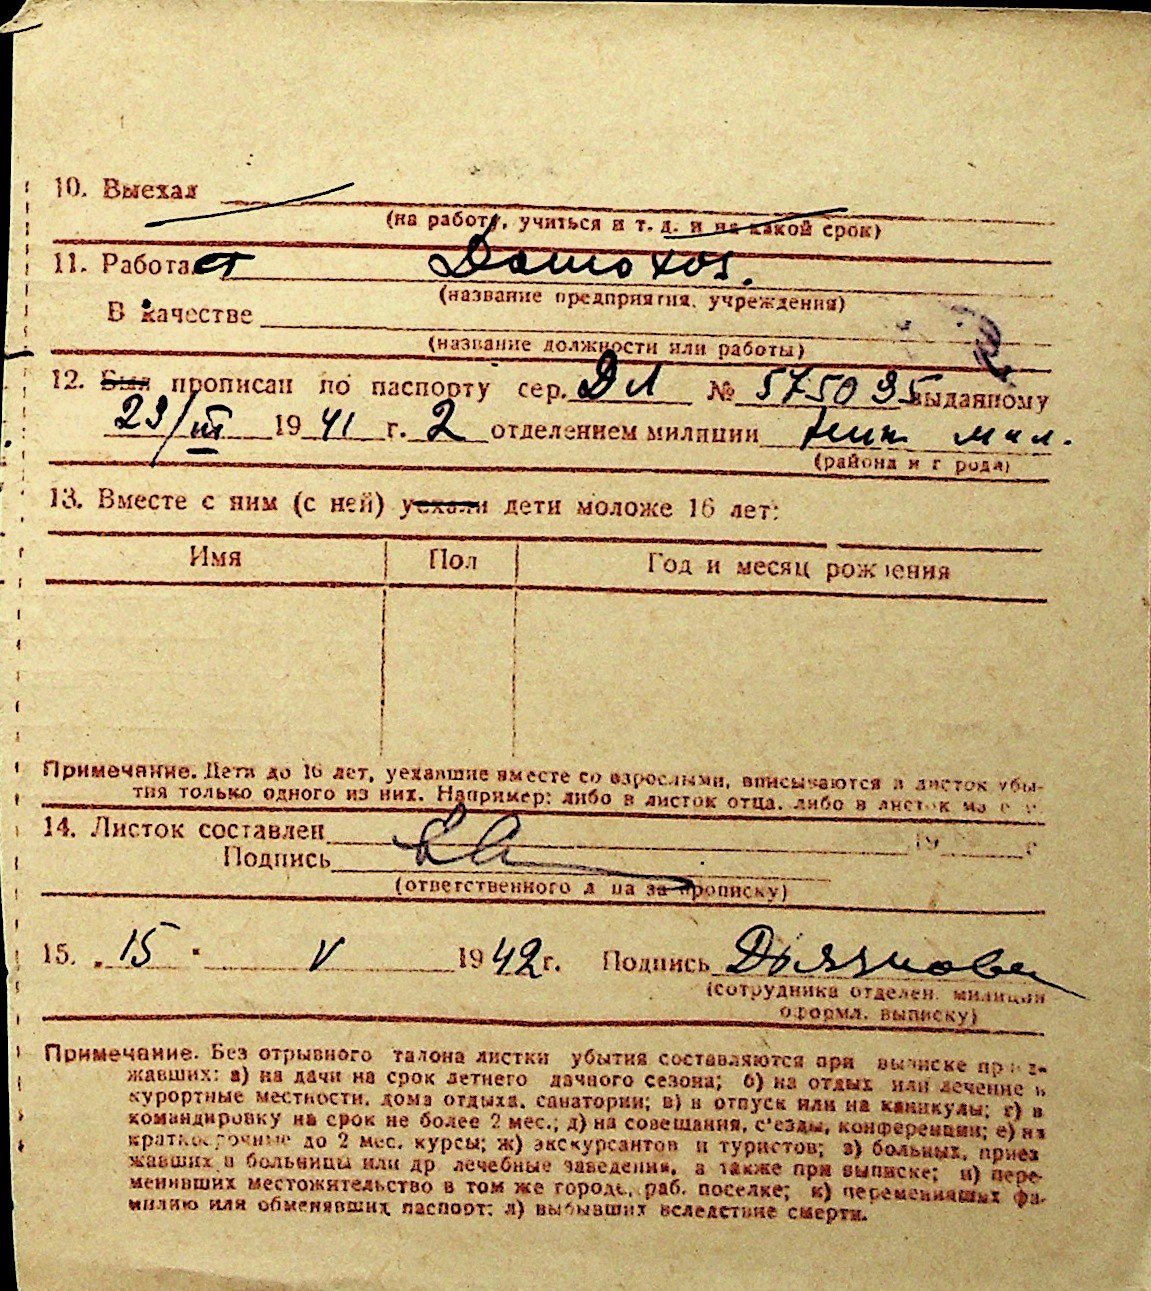 10. Выехал
(на работу, учиться и т. д. и на какой срок)
11. Работает Домохоз.
(название предприятия, учреждения)
В качестве
(название должности или работы)
12. Был прописан по паспорту сер. ДЛ № 575095 выданному
23/III 1941 г. 2 отделением милиции мил.
(района и города)
13. Вместе с ним (с ней) уехали дети моложе 16 лет:
Имя Пол Год и месяц рождения
Примечание. Дети до 16 лет, уехавшие вместе со взрослыми, вписываются в листок убы-
тия только одного из них. Например: либо в листок отца, либо в листок
14. Листок составлен 19 г.
Подпись
(ответственного лица за прописку)
15. „15" V 1942 г. Подпись
(сотрудника отделен. милиции
оформл. выписку)
Примечание. Без отрывного талона листки убытия составляются при выписке приез-
жавших: а) на дачи на срок летнего дачного сезона; б) на отдых или лечение в
курортные местности, дома отдыха, санатории; в) в отпуск или на каникулы; г) в
командировку на срок не более 2 мес.; д) на совещания, с'езды, конференции; е) на
краткосрочные до 2 мес. курсы; ж) экскурсантов и туристов; з) больных, приез
жавших в больницы или др лечебные заведения, а также при выписке; и) пере-
менивших местожительство в том же городе, раб. поселке; к) переменивших фа-
милию или обменявших паспорт; л) выбывших вследствие смерти.